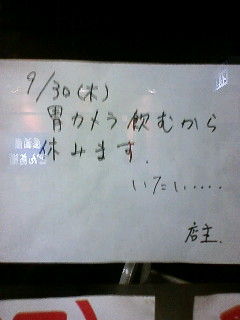 9/30(木)
胃カメラ飲むから
休みます.
いやだ・・・・・
店主.